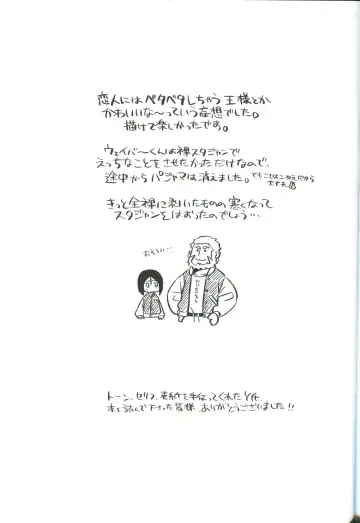 恋人にはベタベタしちゃう王様とか
かわいいな〜っていう妄想でした。
描けて楽しかったです。
ウェイバーくんは裸スタジャンで
えっちなことをさせたかっただけなので、
途中からパジャマは消えました。でもここは二次元だから
大丈夫
きっと全裸に剥いたものの寒くなって
スタジャンをはおったのでしょう…
おそろい…
トーン、セリフ、を手伝ってくれたY佐
本を読んで下さった皆様、ありがとうございました!!